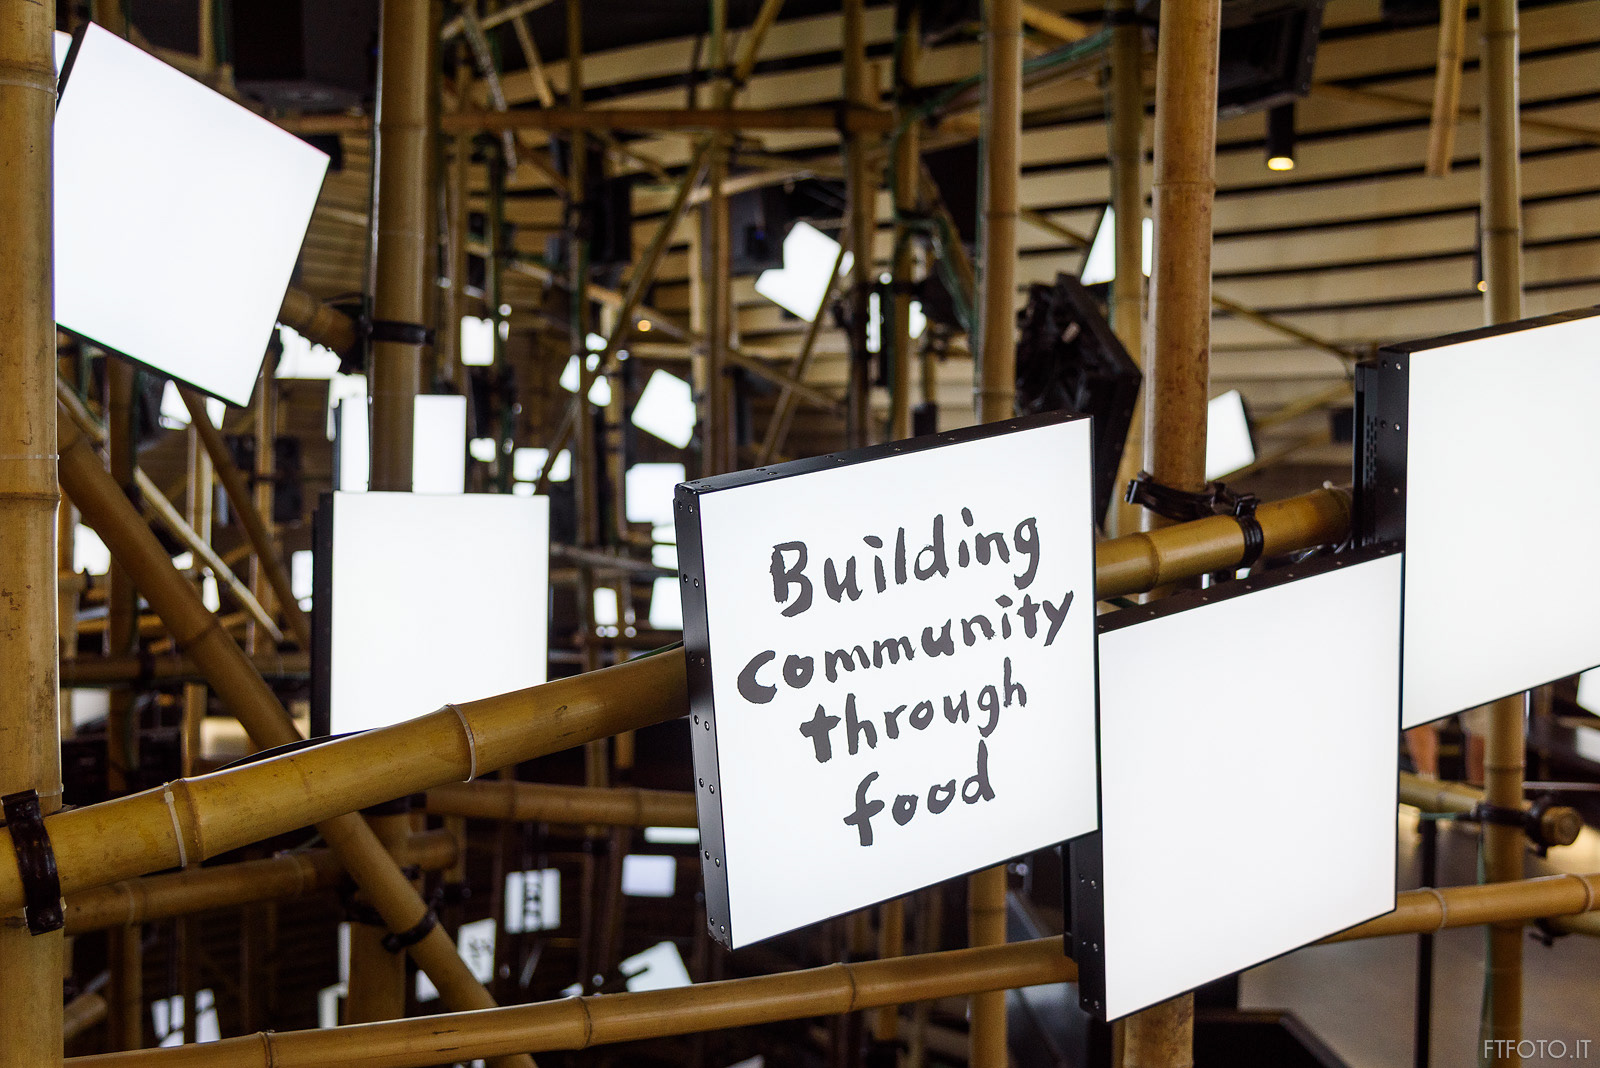 Building
community
through
food
FTFOTO.IT